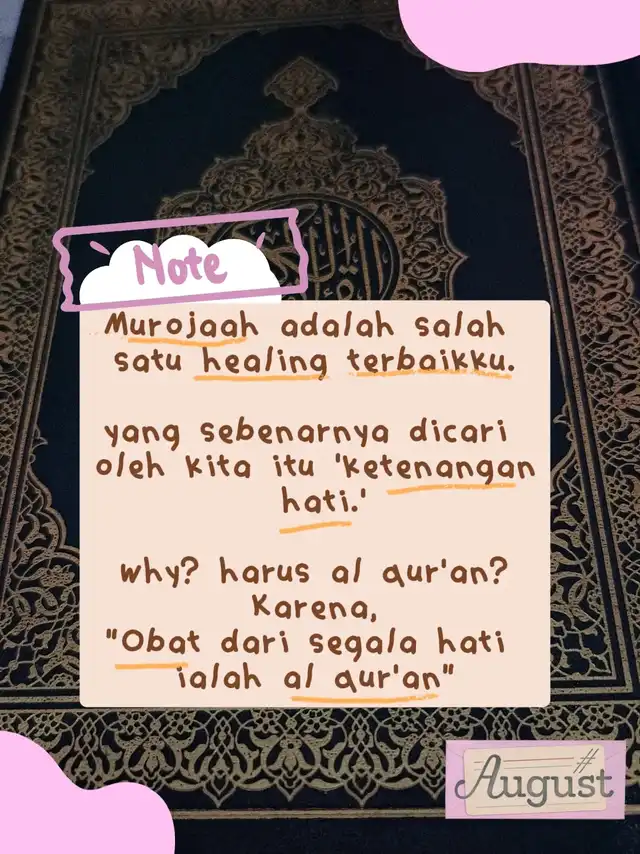 Note
Murojaah adalah salah
satu healing terbaikku.
yang sebenarnya dicari
oleh kita itu 'ketenangan
hati.'
why? harus al qur'an?
Karena,
"Obat dari segala hati
ialah al qur'an"
#
August